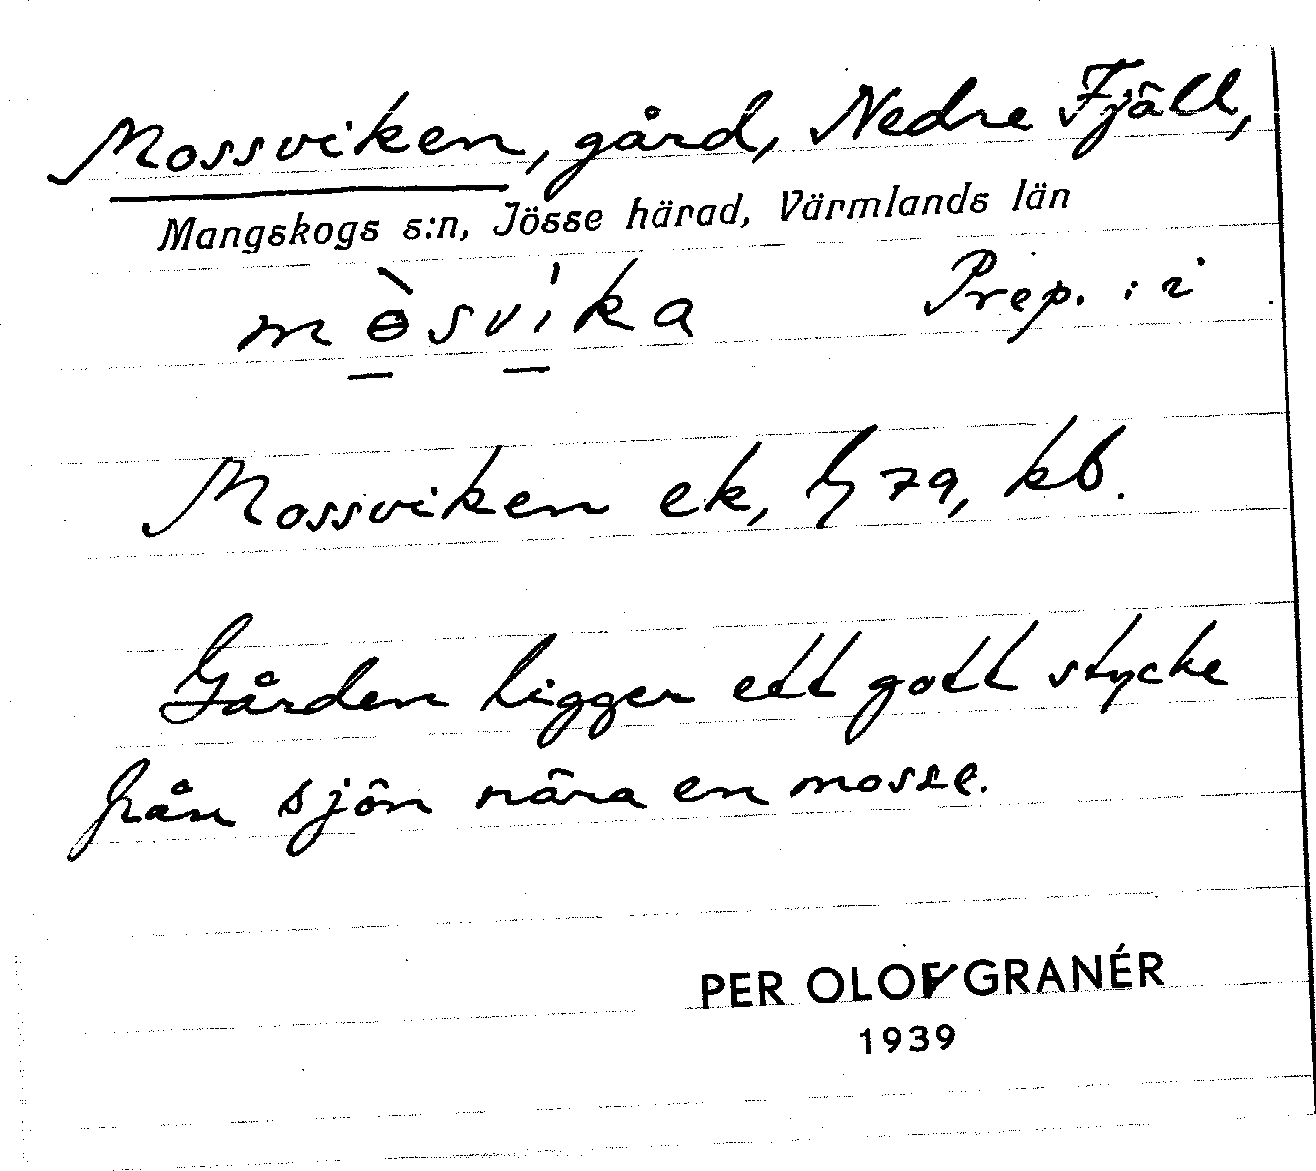 Mossviken, gård, Nedre Fjäll,
Mangskogs s:n, Jösse härad, Värmlands län
mɵ̀svíka Prep. : i
Mossviken ek, 79, kb.
Gården ligger ett gott stycke
från sjön nära en mosse.
PER OLOF GRANÉR
1939